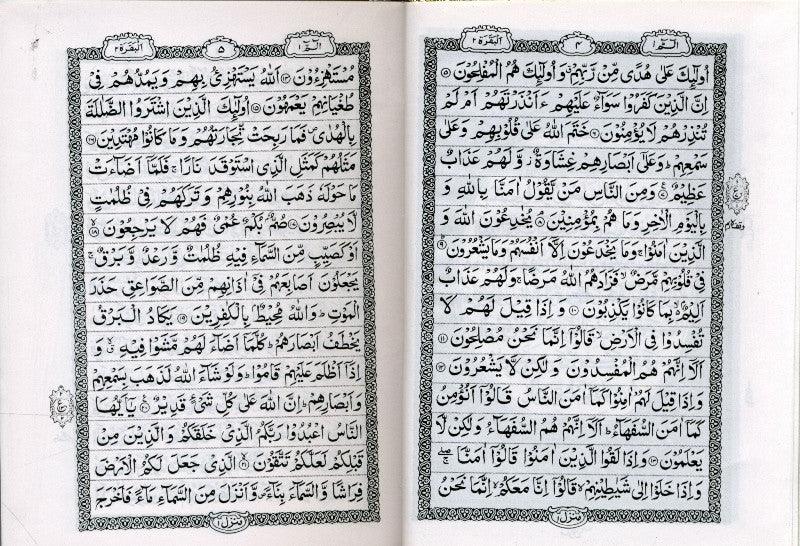 الٓمّٓ ١
٤
البقرة ٢
اُولٰٓئِكَ عَلٰى هُدًى مِّنْ رَّبِّهِمْ ۗ وَ اُولٰٓئِكَ هُمُ الْمُفْلِحُوْنَ ۝٥
اِنَّ الَّذِيْنَ كَفَرُوْا سَوَآءٌ عَلَيْهِمْ ءَاَنْذَرْتَهُمْ اَمْ لَمْ
تُنْذِرْهُمْ لَا يُؤْمِنُوْنَ ۝٦ خَتَمَ اللّٰهُ عَلٰى قُلُوْبِهِمْ وَعَلٰى
سَمْعِهِمْ ؕ وَعَلٰٓى اَبْصَارِهِمْ غِشَاوَةٌ ؗ وَّلَهُمْ عَذَابٌ
عَظِيْمٌ ۝٧ وَمِنَ النَّاسِ مَنْ يَّقُوْلُ اٰمَنَّا بِاللّٰهِ وَ
بِالْيَوْمِ الْاٰخِرِ وَمَا هُمْ بِمُؤْمِنِيْنَ ۝٨ يُخٰدِعُوْنَ اللّٰهَ وَ
الَّذِيْنَ اٰمَنُوْا ۚ وَمَا يَخْدَعُوْنَ اِلَّآ اَنْفُسَهُمْ وَمَا يَشْعُرُوْنَ ۝٩
فِيْ قُلُوْبِهِمْ مَّرَضٌ ۙ فَزَادَهُمُ اللّٰهُ مَرَضًا ۚ وَلَهُمْ عَذَابٌ
اَلِيْمٌ ۢ بِمَا كَانُوْا يَكْذِبُوْنَ ۝١٠ وَ اِذَا قِيْلَ لَهُمْ لَا
تُفْسِدُوْا فِي الْاَرْضِ ۙ قَالُوْٓا اِنَّمَا نَحْنُ مُصْلِحُوْنَ ۝١١
اَلَآ اِنَّهُمْ هُمُ الْمُفْسِدُوْنَ وَ لٰكِنْ لَّا يَشْعُرُوْنَ ۝١٢
وَاِذَا قِيْلَ لَهُمْ اٰمِنُوْا كَمَآ اٰمَنَ النَّاسُ قَالُوْٓا اَنُؤْمِنُ
كَمَآ اٰمَنَ السُّفَهَآءُ ؕ اَلَآ اِنَّهُمْ هُمُ السُّفَهَآءُ وَلٰكِنْ لَّا
يَعْلَمُوْنَ ۝١٣ وَاِذَا لَقُوا الَّذِيْنَ اٰمَنُوْا قَالُوْٓا اٰمَنَّا ۚ
وَ اِذَا خَلَوْا اِلٰى شَيٰطِيْنِهِمْ ۙ قَالُوْٓا اِنَّا مَعَكُمْ ۙ اِنَّمَا نَحْنُ
منزل ١
الٓمّٓ ١
٥
البقرة ٢
مُسْتَهْزِءُوْنَ ۝١٤ اَللّٰهُ يَسْتَهْزِئُ بِهِمْ وَيَمُدُّهُمْ فِيْ
طُغْيَانِهِمْ يَعْمَهُوْنَ ۝١٥ اُولٰٓئِكَ الَّذِيْنَ اشْتَرَوُا الضَّلٰلَةَ
بِالْهُدٰى ۪ فَمَا رَبِحَتْ تِّجَارَتُهُمْ وَ مَا كَانُوْا مُهْتَدِيْنَ ۝١٦
مَثَلُهُمْ كَمَثَلِ الَّذِي اسْتَوْقَدَ نَارًا ۚ فَلَمَّآ اَضَآءَتْ
مَا حَوْلَهٗ ذَهَبَ اللّٰهُ بِنُوْرِهِمْ وَ تَرَكَهُمْ فِيْ ظُلُمٰتٍ
لَّا يُبْصِرُوْنَ ۝١٧ صُمٌّ ۢ بُكْمٌ عُمْيٌ فَهُمْ لَا يَرْجِعُوْنَ ۝١٨
اَوْ كَصَيِّبٍ مِّنَ السَّمَآءِ فِيْهِ ظُلُمٰتٌ وَّ رَعْدٌ وَّ بَرْقٌ ۚ
يَجْعَلُوْنَ اَصَابِعَهُمْ فِيْٓ اٰذَانِهِمْ مِّنَ الصَّوَاعِقِ حَذَرَ
الْمَوْتِ ؕ وَاللّٰهُ مُحِيْطٌ ۢ بِالْكٰفِرِيْنَ ۝١٩ يَكَادُ الْبَرْقُ
يَخْطَفُ اَبْصَارَهُمْ ؕ كُلَّمَآ اَضَآءَ لَهُمْ مَّشَوْا فِيْهِ ۙ وَ
اِذَآ اَظْلَمَ عَلَيْهِمْ قَامُوْا ؕ وَلَوْ شَآءَ اللّٰهُ لَذَهَبَ بِسَمْعِهِمْ
وَ اَبْصَارِهِمْ ؕ اِنَّ اللّٰهَ عَلٰى كُلِّ شَيْءٍ قَدِيْرٌ ۝٢٠ يٰٓاَيُّهَا
النَّاسُ اعْبُدُوْا رَبَّكُمُ الَّذِيْ خَلَقَكُمْ وَ الَّذِيْنَ مِنْ
قَبْلِكُمْ لَعَلَّكُمْ تَتَّقُوْنَ ۝٢١ الَّذِيْ جَعَلَ لَكُمُ الْاَرْضَ
فِرَاشًا وَّ السَّمَآءَ بِنَآءً ۪ وَّ اَنْزَلَ مِنَ السَّمَآءِ مَآءً فَاَخْرَجَ
منزل ١